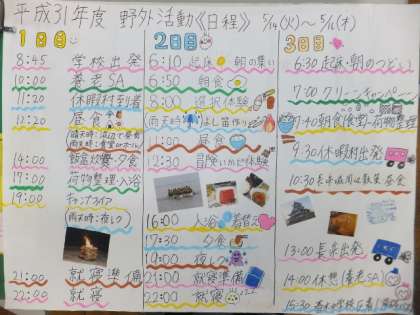 平成31年度 野外活動《日程》 5/14(火)〜5/16(木)
1日目
8:45 学校出発
10:00 養老SA
11:20 休暇村到着
12:20 昼食
14:00 飯盒炊爨・夕食
17:00 荷物整理・入浴
19:00 キャンプファイア
(雨天時:夜レク)
21:00 就寝準備
22:00 就寝
2日目
6:10 起床 朝の集い
6:50 朝食
8:00 選択体験
雨天時 よし笛作り
11:00 昼食
12:30 冒険いかだ体験
16:00 入浴 着替え
17:30 夕食
19:00 夜レク
21:00 就寝準備
22:00 就寝
3日目
6:30 起床・朝のつどい
7:00 クリーンキャンペーン
7:40 朝食(食堂)・荷物整理
9:30 休暇村出発
10:30 長浜 散策 昼食
13:00 長浜出発
14:00 休憩(養老SA)
15:30